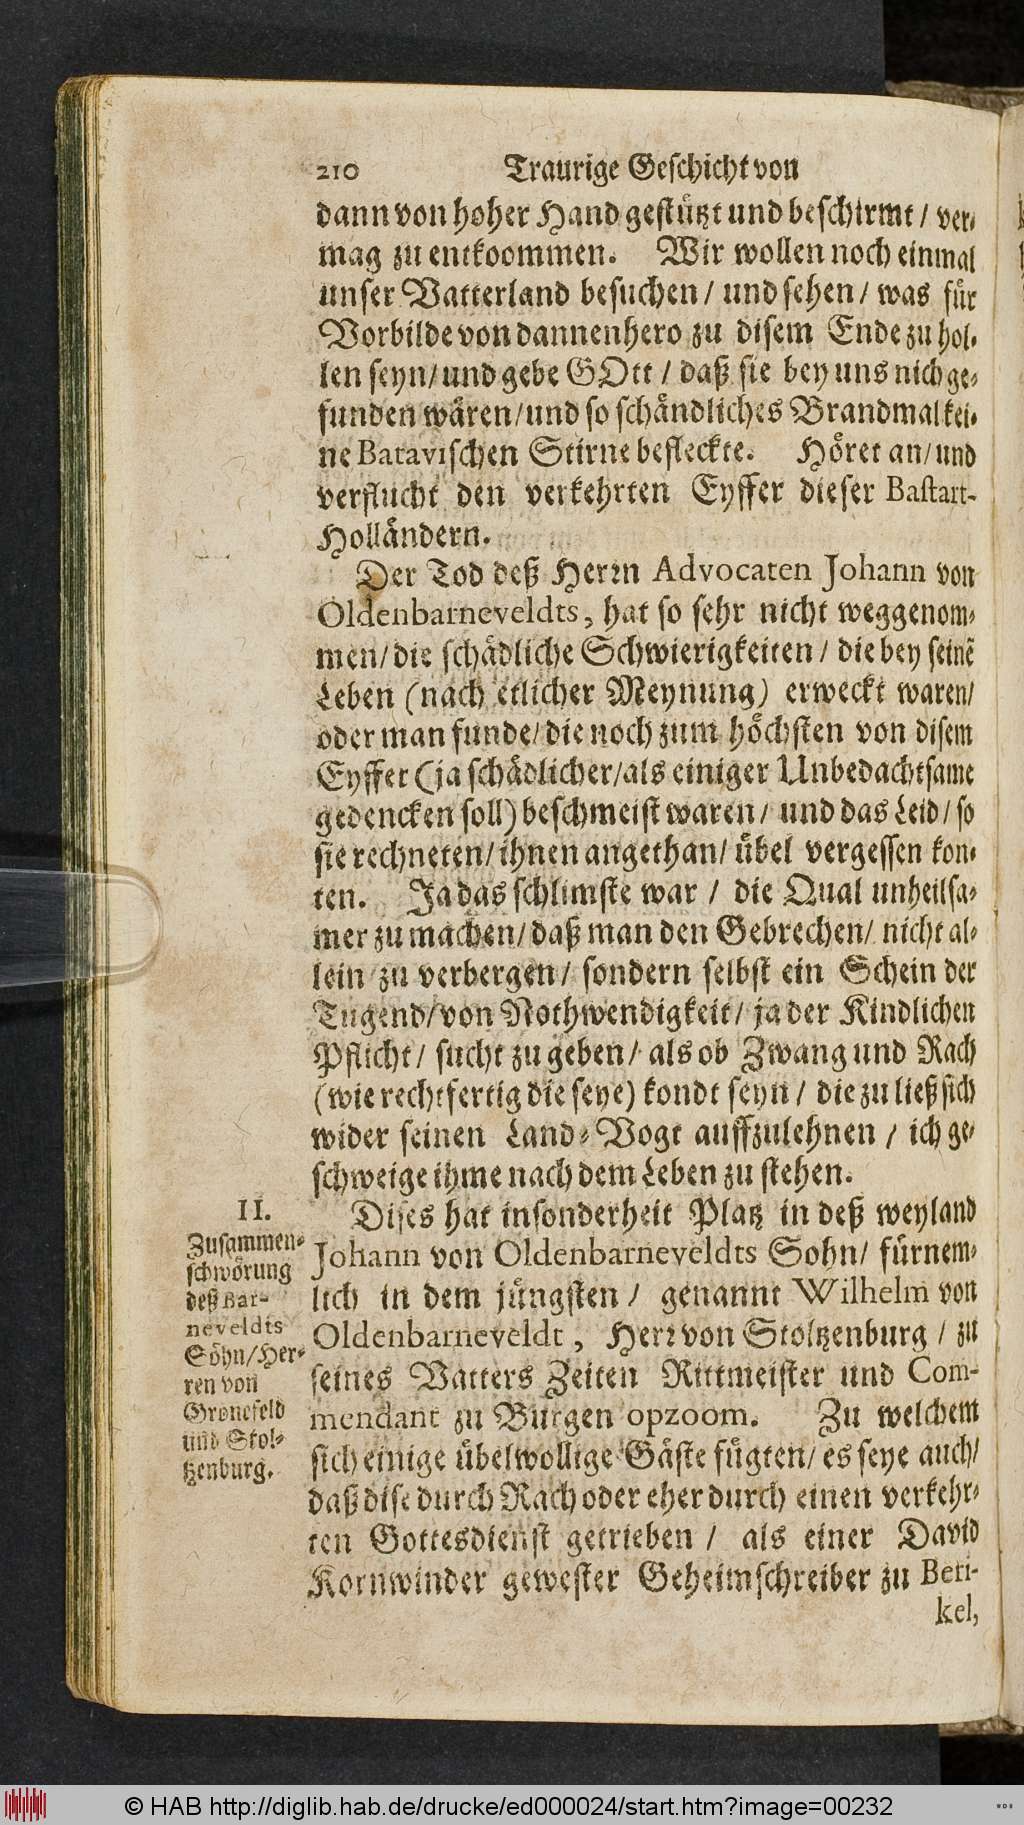 210 Traurige Geschicht von
dann von hoher Hand gestützt und beschirmt / ver-
mag zu entkoommen. Wir wollen noch einmal
unser Vatterland besuchen / und sehen / was für
Vorbilde von dannenhero zu disem Ende zu hol-
len seyn / und gebe GOtt / daß sie bey uns nich ge-
funden wären / und so schändliches Brandmal kei-
ne Batavischen Stirne befleckte. Höret an / und
verflucht den verkehrten Eyffer dieser Bastart-
Holländern.
Der Tod deß Herrn Advocaten Johann von
Oldenbarneveldts, hat so sehr nicht weggenom-
men / die schädliche Schwierigkeiten / die bey seinē
Leben (nach etlicher Meynung) erweckt waren /
oder man funde / die noch zum höchsten von disem
Eyffer (ja schädlicher / als einiger Unbedachtsame
gedencken soll) beschmeist waren / und das Leid / so
sie rechneten / ihnen angethan / übel vergessen kon-
ten. Ja das schlimste war / die Qual unheilsa-
mer zu machen / daß man den Gebrechen / nicht al-
lein zu verbergen / sondern selbst ein Schein der
Tugend / von Nothwendigkeit / ja der Kindlichen
Pflicht / sucht zu geben / als ob Zwang und Rach
(wie rechtfertig die seye) kondt seyn / die zu ließ sich
wider seinen Land-Vogt auffzulehnen / ich ge-
schweige ihme nach dem Leben zu stehen.
II.
Zusammen-
schwörung
deß Bar-
neveldts
Söhn / Her-
ren von
Gronefeld
und Stol-
tzenburg.
Dises hat insonderheit Platz in deß weyland
Johann von Oldenbarneveldts Sohn / fürnem-
lich in dem jüngsten / genannt Wilhelm von
Oldenbarneveldt, Herr von Stoltzenburg / zu
seines Vatters Zeiten Rittmeister und Com-
mendant zu Burgen opzoom. Zu welchem
sich einige übelwollige Gäste fügten / es seye auch /
daß dise durch Rach oder eher durch einen verkehr-
ten Gottesdienst getrieben / als einer David
Kornwinder gewester Geheimschreiber zu Beri-
kel,
© HAB http://diglib.hab.de/drucke/ed000024/start.htm?image=00232